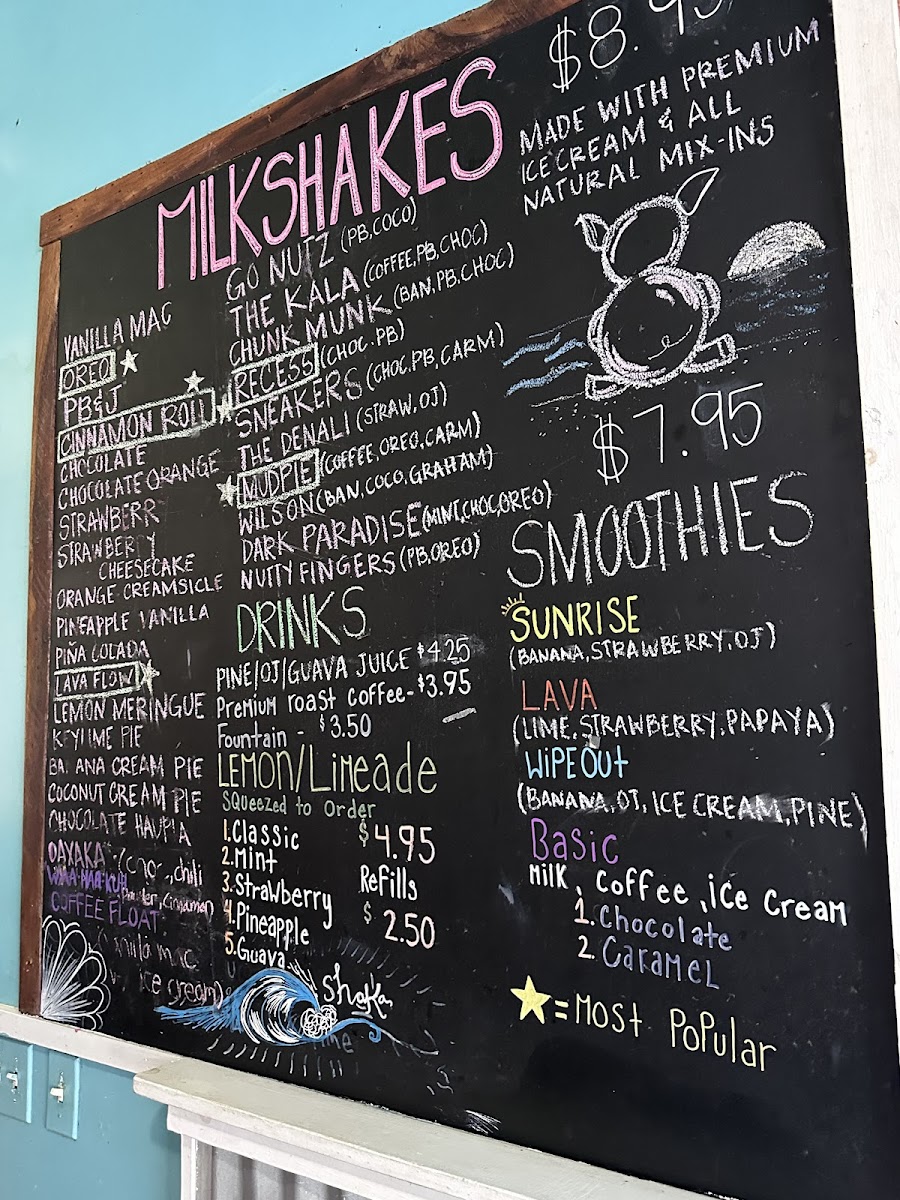 MILKSHAKES
$8.95
MADE WITH PREMIUM
ICE CREAM & ALL
NATURAL MIX-INS
VANILLA MAC
OREO
PB&J
CINNAMON ROLL
CHOCOLATE
CHOCOLATE ORANGE
STRAWBERR
STRAWBERRY
CHEESECAKE
ORANGE CREAMSICLE
PINEAPPLE VANILLA
PIÑA COLADA
LAVA FLOW
LEMON MERINGUE
KEYLIME PIE
BA ANA CREAM PIE
COCONUT CREAM PIE
CHOCOLATE HAUPIA
OAXAKA chili
cinnamon)
COFFEE FLOAT
mac
ice cream)
GO NUTZ (PB, COCO)
THE KALA (COFFEE, PB, CHOC)
CHUNK MUNK (BAN, PB, CHOC)
RECESS (CHOC. PB)
SNEAKERS (CHOC, PB, CARM)
THE DENALI (STRAW, OJ)
MUDPIE (COFFEE, OREO, CARM)
WILSON (BAN, COCO, GRAHAM)
DARK PARADISE (MINT, CHOC, OREO)
NUTTY FINGERS (PB, OREO)
DRINKS
PINE/OJ/GUAVA JUICE $4.25
Premium roast coffee - $3.95
Fountain - $3.50
LEMON/Limeade
Squeezed to Order
1. Classic $4.95
2. Mint
3. Strawberry Refills
4. Pineapple $2.50
5. Guava
shaka
$7.95
SMOOTHIES
SUNRISE
(BANANA, STRAWBERRY, OJ)
LAVA
(LIME, STRAWBERRY, PAPAYA)
WiPEOut
(BANANA, OJ, ICE CREAM, PINE)
Basic
Milk, Coffee, ice Cream
1. Chocolate
2. Caramel
= Most Popular